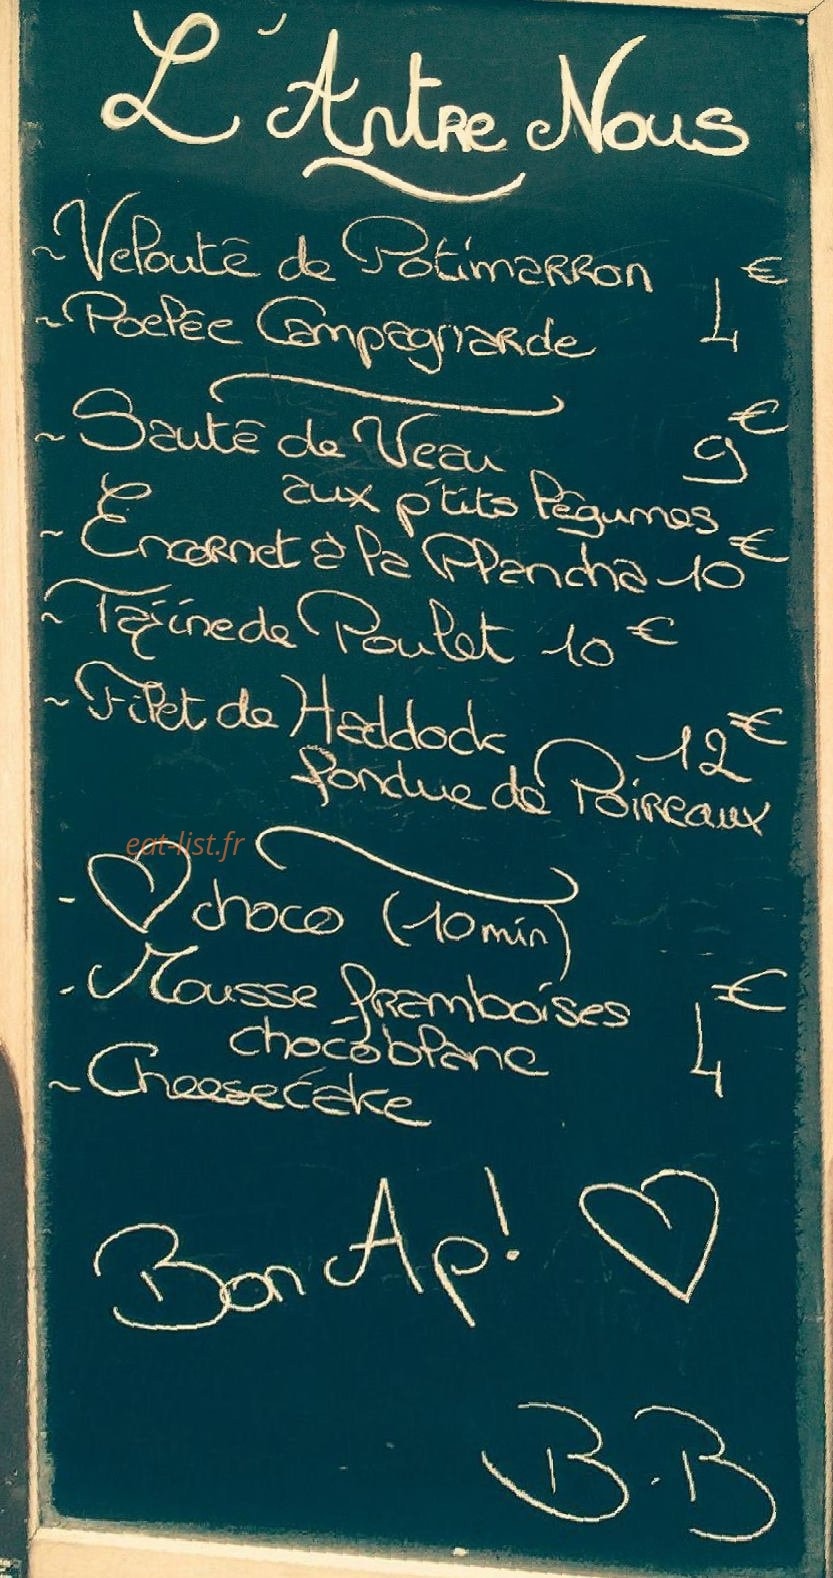 L'Antre Nous
~ Velouté de Potimarron
4€
~ Poelée Campagnarde
~ Sauté de Veau 9€
aux p'tits légumes
- Encornet à la Plancha 10€
~ Tajine de Poulet 10€
~ Filet de Haddock 12€
fondue de Poireaux
eat-list.fr
- ♡ choco (10min)
- Mousse framboises
4€
choco blanc
~ Cheesecake
Bon Ap! ♡
B.B